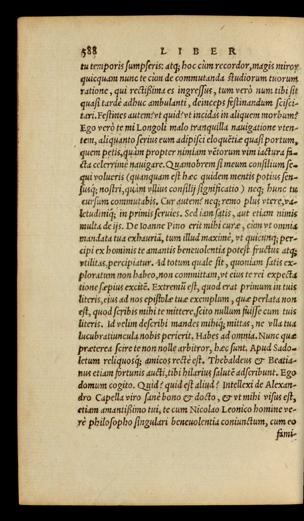 588 LIBER
tu temporis sumpseris: atq; hoc cùm recordor, magis miror
quicquam nunc te cùm de commutanda studiorum tuorum
ratione, qui rectißima es ingressus, tum verò num tibi sit
quasi tardè adhuc ambulanti, deinceps festinandum scisci-
tari. Festines autem? vt quid? vt incidas in aliquem morbum?
Ego verò te mi Longoli malo tranquilla nauigatione vten-
tem, aliquanto serius eum adipisci eloquentiæ quasi portum,
quem petis, quàm propter nimiam vectorum vim iactura fa-
cta celerrimè nauigare. Quamobrem si meum consilium se-
qui volueris (quanquam est hæc quidem mentis potius sen-
susq; nostri, quàm vllius consilij significatio) neq; hunc tu
cursum commutabis. Cur autem? neq; remo plus vtere, va-
letudiniq; in primis seruies. Sed iam satis, aut etiam nimis
multa de ijs. De Ioanne Pino erit mihi curæ, cùm vt omnia
mandata tua exhauriã, tum illud maximè, vt quicunq; per-
cipi ex hominis te amantis beneuolentia potest fructus atq;
vtilitas, percipiatur. Id totum quale sit, quoniam satis ex-
ploratum non habeo, non committam, vt eius te rei expecta
tione sæpius excitē. Extremū est, quod erat primum in tuis
literis, eius ad nos epistolæ tuæ exemplum, quæ perlata non
est, quod scribis mihi te mittere, scito nullum fuisse cum tuis
literis. Id velim describi mandes mihiq; mittas, ne vlla tua
lucubratiuncula nobis perierit. Habes ad omnia. Nunc quæ
præterea scire te non nolle arbitror, hæc sunt. Apud Sado-
letum reliquosq; amicos rectè est. Thebaldeus & Beatia-
nus etiam fortunis aucti, tibi hilarius salutē adscribunt. Ego
domum cogito. Quid? quid est aliud? Intellexi de Alexan-
dro Capella viro sanè bono & docto, & vt mihi visus est,
etiam amantißimo tui, te cum Nicolao Leonico homine ve-
rè philosopho singulari beneuolentia coniunctum, cum eo
fami-